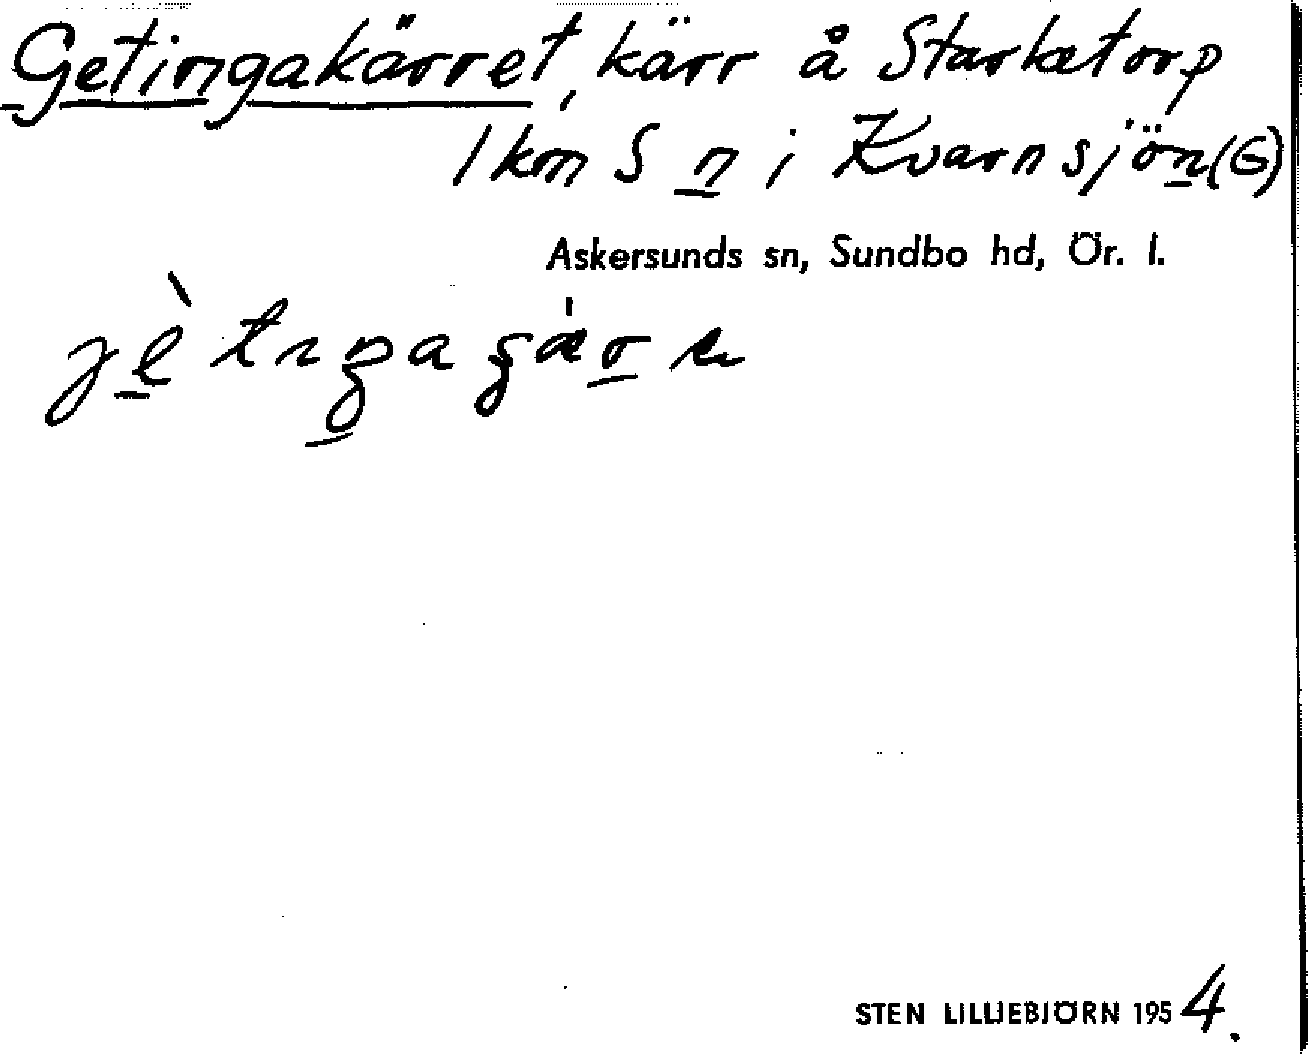 Getingakärret, kärr å Starketorp
1 km S n i Kvarnsjön (G)
Askersunds sn, Sundbo hd, Ör. l.
STEN LILLJEBJÖRN 1954.